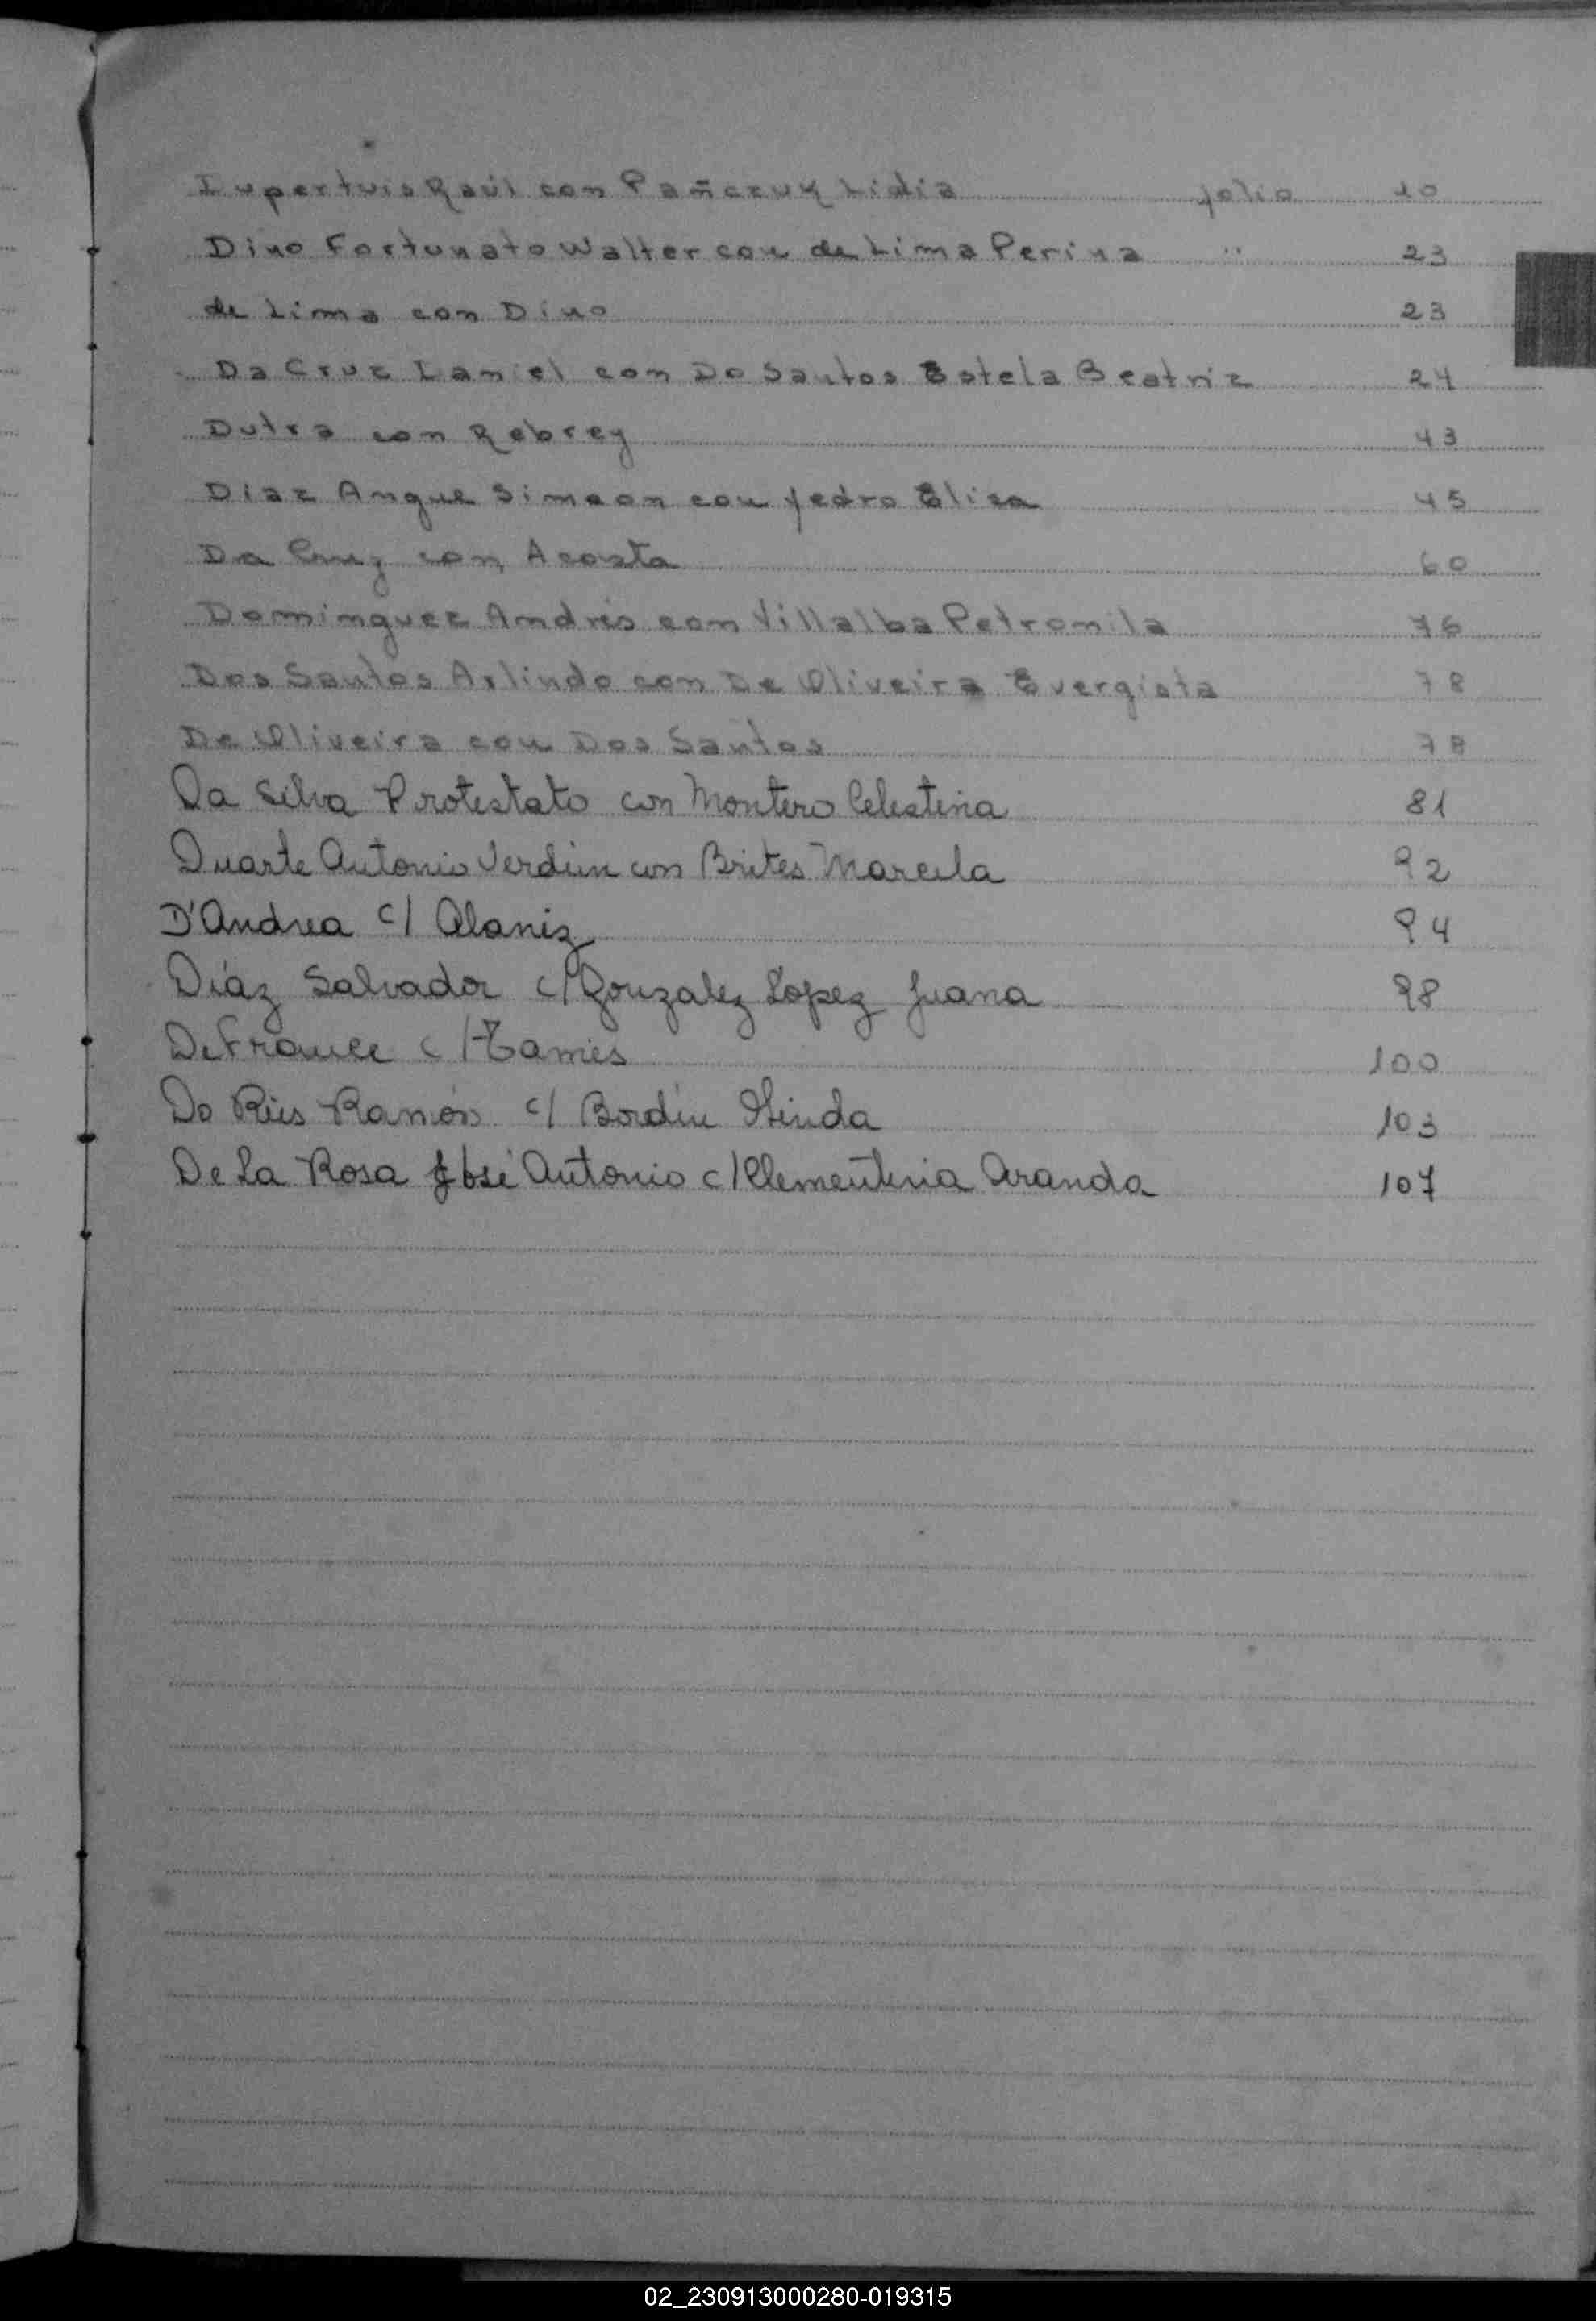 Dupertuis Raúl con Pañczuk Lidia folio 10
Dino Fortunato Walter con de Lima Perina " 23
de Lima con Dino 23
Da Cruz Daniel con Do Santos Estela Beatriz 24
Dutra con Rebrey 43
Diaz Angue Simeon con Yedro Elisa 45
Da Cruz con Acosta 60
Dominguez Andrés con Villalba Petromila 76
Dos Santos Arlindo con De Oliveira Evergista 78
De Oliveira con Dos Santos 78
Da Silva Protestato con Montero Celestina 81
Duarte Antonio Verdún con Brites Marcela 92
D'Andrea c/ Alaniz 94
Díaz Salvador c/ Gonzalez López Juana 98
De France c/ Tamies 100
Do Riis Ramón c/ Bordín 103
De La Rosa José Antonio c/ Clementina Aranda 107
02_230913000280-019315